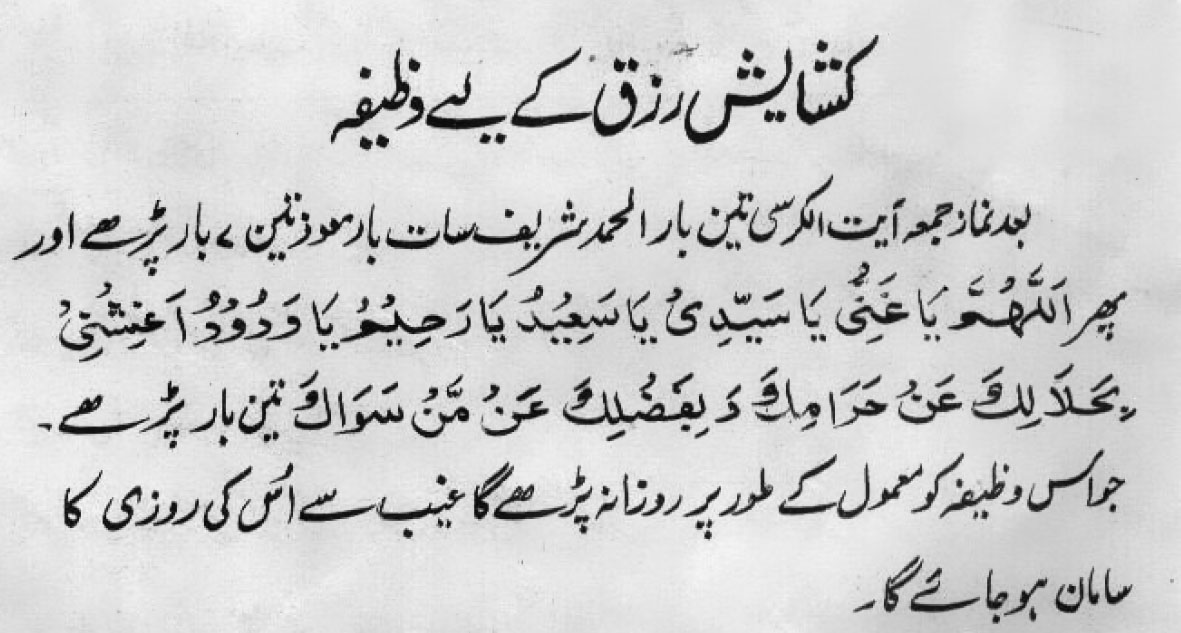 کشایش رزق کے لیے وظیفہ
بعد نماز جمعہ آیت الکرسی تین بار الحمد شریف سات بار معوذتین ۷ بار پڑھے اور
پھر اَللّٰهُمَّ يَا غَنِيُّ يَا سَيِّدِىُ يَا سَعِيُدُ يَا رَحِيُمُ يَا وَدُوُدُ اَغِنِىُ
بِحَلَالِكَ عَنُ حَرَامِكَ وَ بِفَضُلِكَ عَنُ مَّنُ سَوَاكَ تین بار پڑھے۔
جو اس وظیفہ کو معمول کے طور پر روزانہ پڑھے گا غیب سے اُس کی روزی کا
سامان ہو جائے گا۔